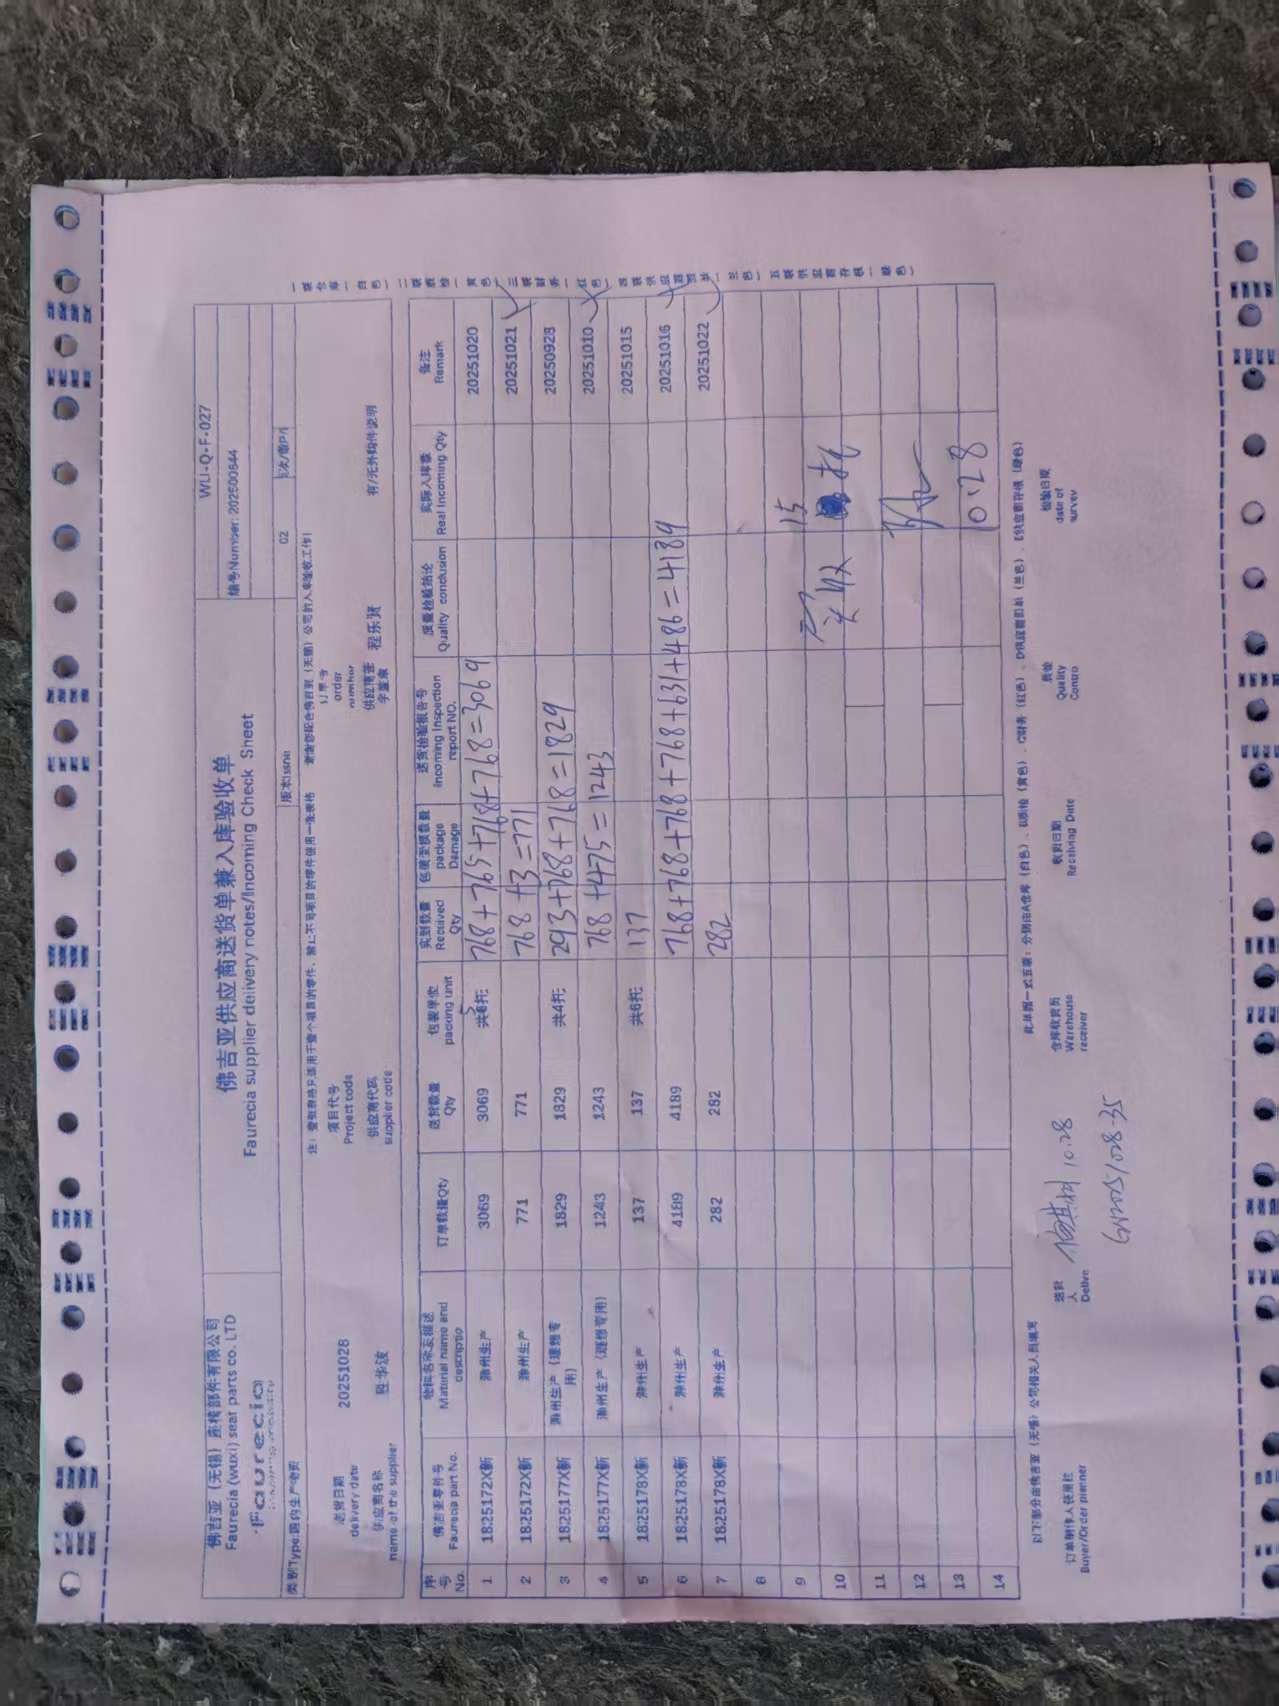 佛吉亚(无锡)座椅部件有限公司
Faurecia (wuxi) seat parts co. LTD
faurecia
佛吉亚供应商送货单兼入库验收单
Faurecia supplier delivery notes/Incoming Check Sheet
WLI-Q-F-027
编号Number: 202500844
类别Type:国内生产物资
版本Issue
02
送货日期
delivery date
20251028
项目代号
Project code
订单号
order
number
供应商名称
name of the supplier
供应商代码
supplier code
程乐贤
有/无外购件说明
序号
No.
佛吉亚零件号
Faurecia part No.
物料名称或描述
Material name and
descriptio
订单数量Qty
送货数量
Qty
包装单位
packing unit
实到数量
Received
Qty
包装受损数量
package
Damage
送货检验报告号
Incoming Inspection
report NO.
质量检验结论
Quality conclusion
实际入库数
Real Incoming Qty
备注
Remark
1 1825172X新 滁州生产 3069 3069 768+765+768+768=3069 20251020
2 1825172X新 滁州生产 771 771 768+3=771 20251021
3 1825177X新 滁州生产(理想专用) 1829 1829 共4托 293+768+768=1829 20250928
4 1825177X新 滁州生产(理想专用) 1243 1243 768+475=1243 20251010
5 1825178X新 滁州生产 137 137 共6托 137 20251015
6 1825178X新 滁州生产 4189 4189 768+768+768+768+631+486=4189 20251016
7 1825178X新 滁州生产 282 282 282 20251022
8
9
10
11
12
13
14
实收 15 托
10.28
以下部分由佛吉亚(无锡)公司相关人员填写
此单据一式五联:分别由A仓库(白色)、B质检(黄色)、C财务(红色)、D供应商回单(兰色)、E供应商存根(绿色)
订单制作人使用栏
Buyer/Order planner
送货人
Delive
10.28
仓库收货员
Warehouse
receiver
收货日期
Receiving Date
质检
Quality
Contro
检验日期
date of
survey
GN20251028-35